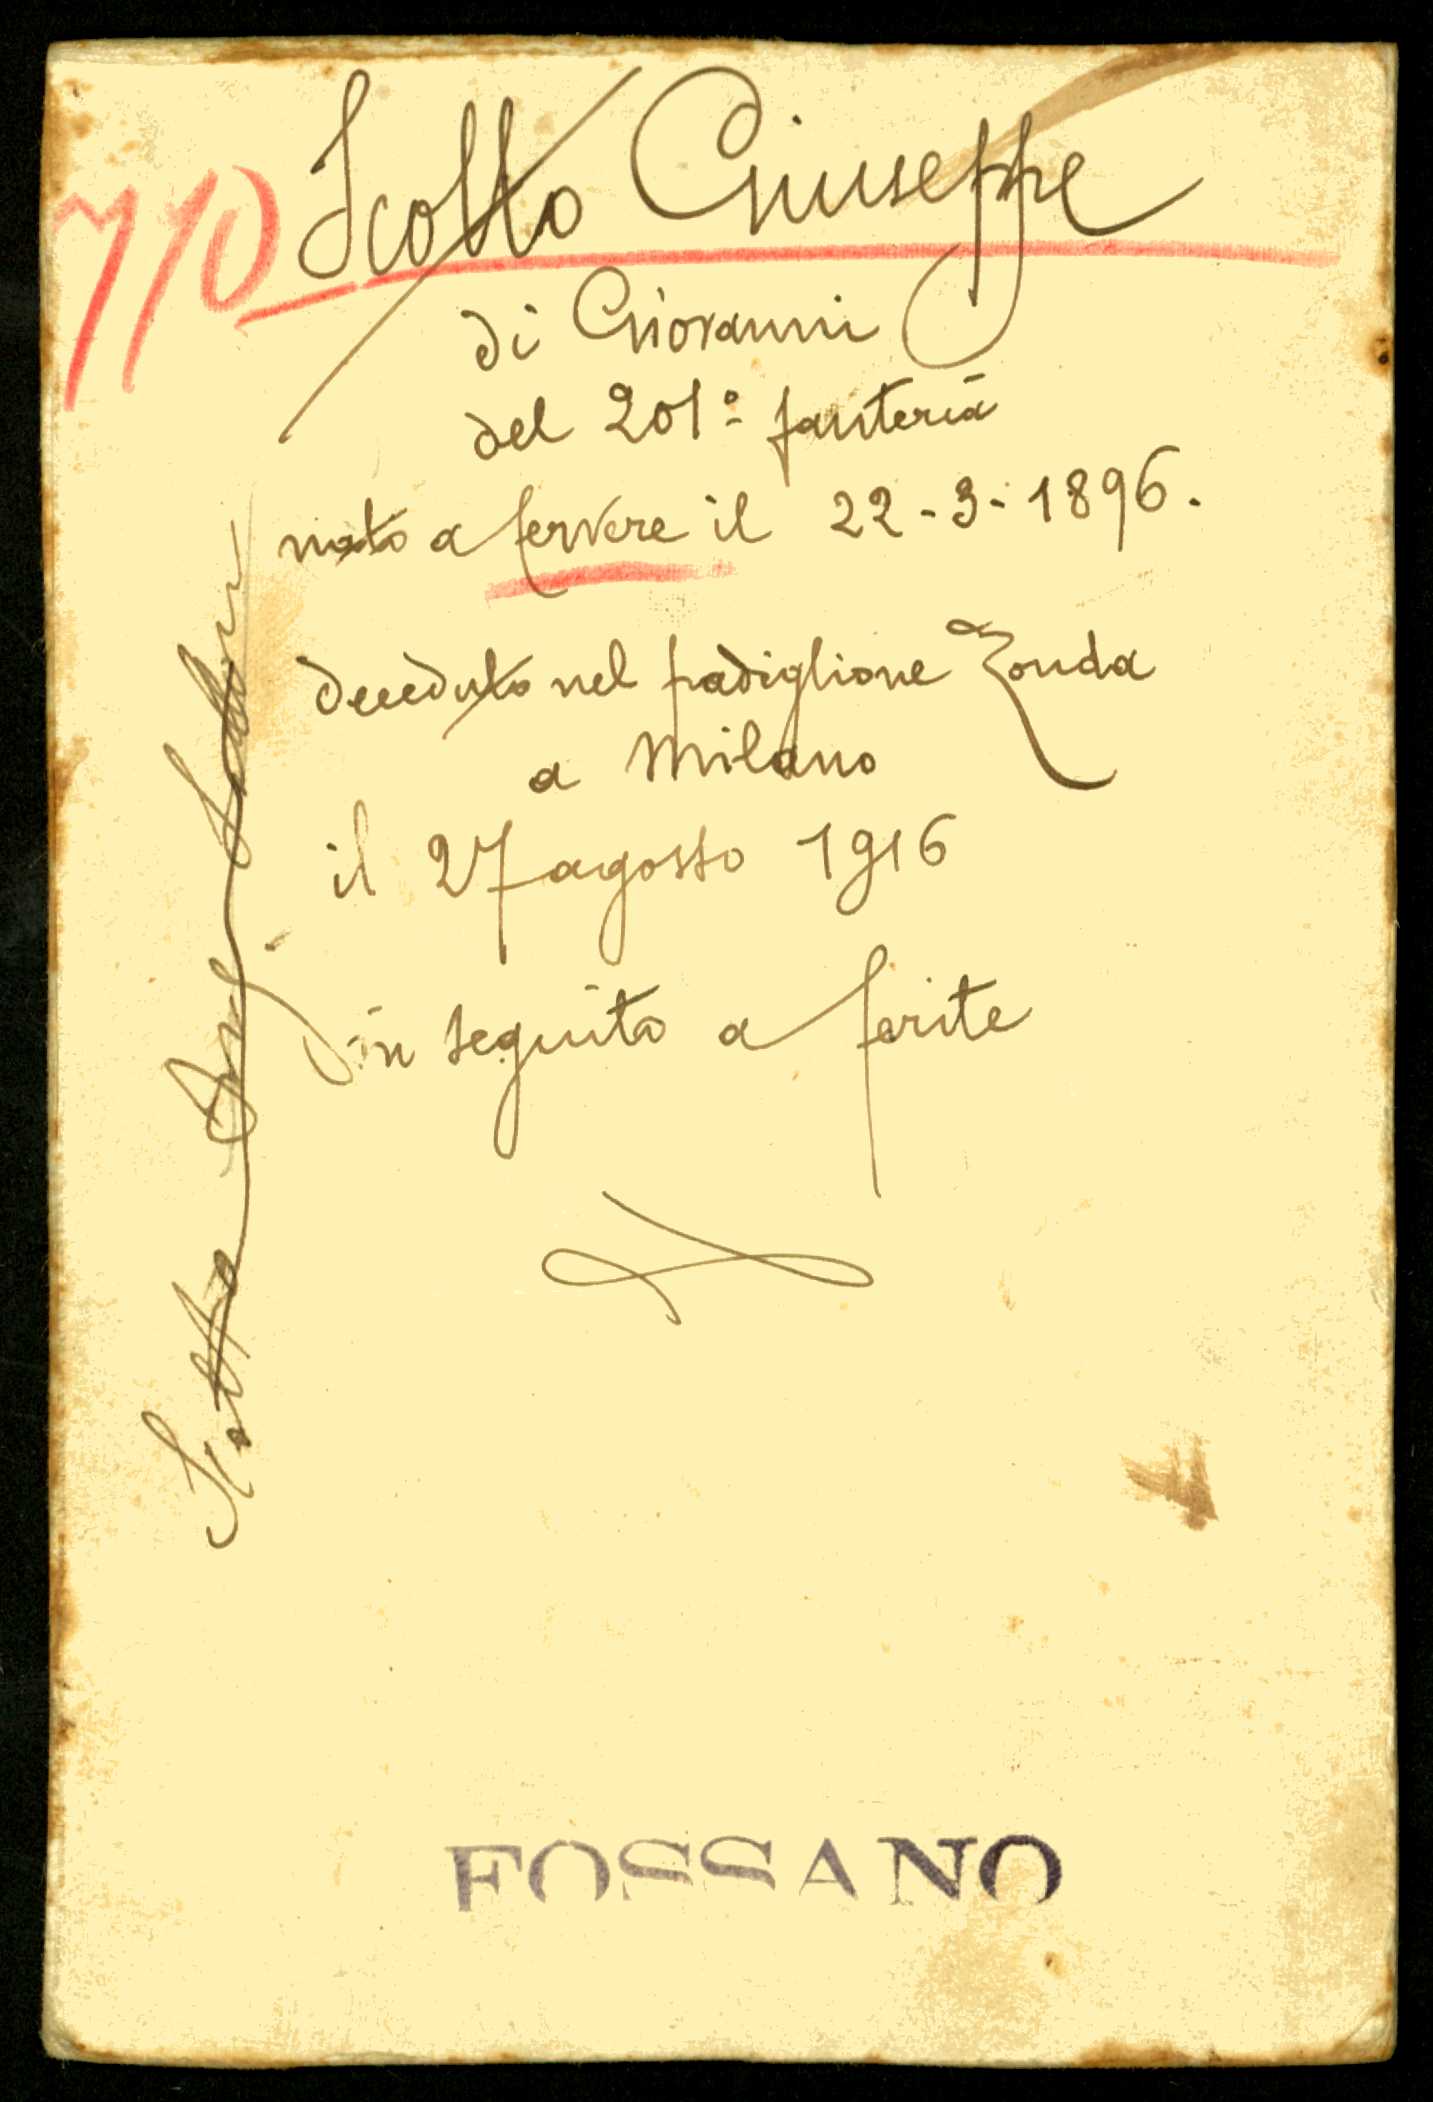 710 Scotto Giuseppe
di Giovanni
del 201º fanteria
nato a fervere il 22-3-1896.
deceduto nel padiglione Zonda
a Milano
il 27 agosto 1916
in seguito a ferite
Scotto
FOSSANO